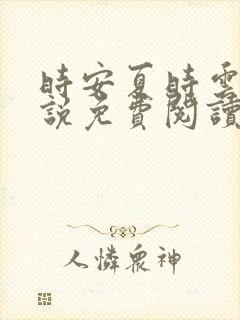 時安夏時雲
說免費閱讀
人憐眾神